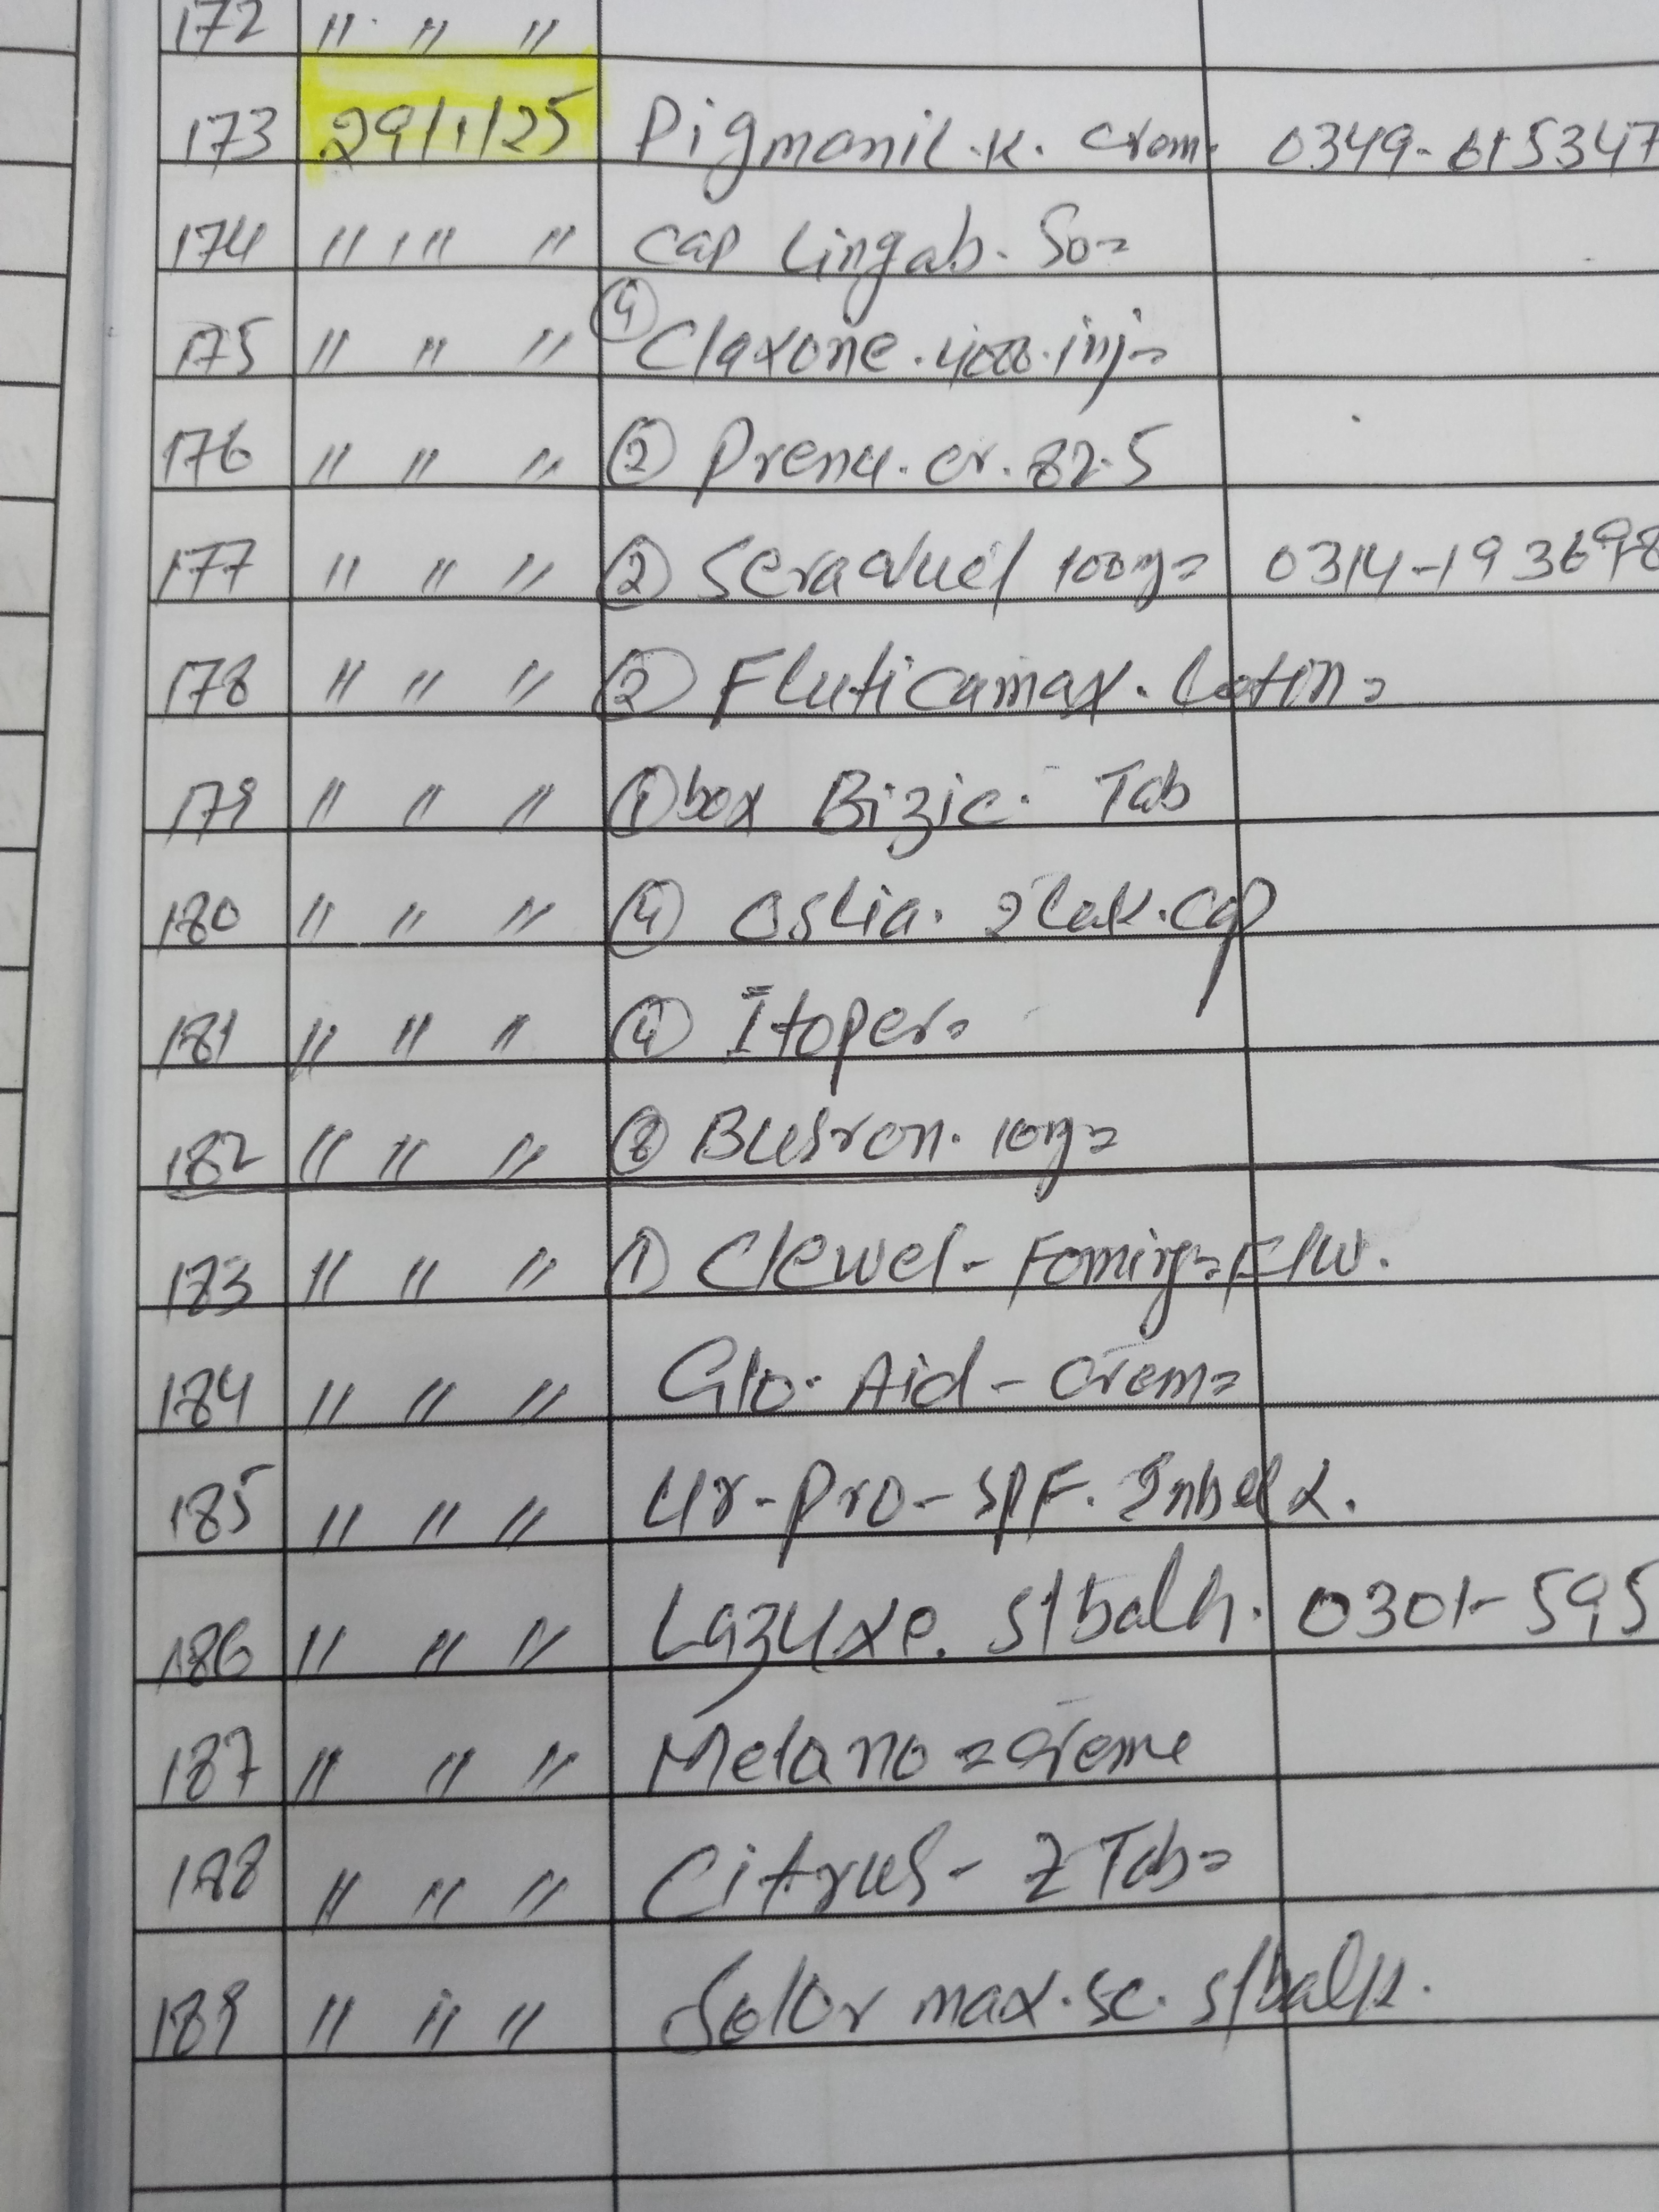 172 " " "
173 29/1/25 Pigmanil.K. Crem. 0349-
174 " " " Cap Lingab. 50=
175 " " " (4) Claxone. inj=
176 " " " (2) Prenu. cr. 82.5
177 " " " (2) 100mg= 0314-193698
178 " " " (2) Fluticamax. Lotin=
179 " " " (1) box Bizic. Tab
180 " " " (4) Oslia. 2lak. cap
181 " " " (4) Itoper=
182 " " " Busron. 10mg=
183 " " " (1) Clewel- Foming= F/W.
184 " " " Glo. Aid- Crem=
185 " " " Ur-Pro- SPF.
186 " " " Lazuxe. s/balk. 0301-595
187 " " " Melano = Creme
188 " " " Citrus- Z Tab=
189 " " " Solor max. sc. s/balk.